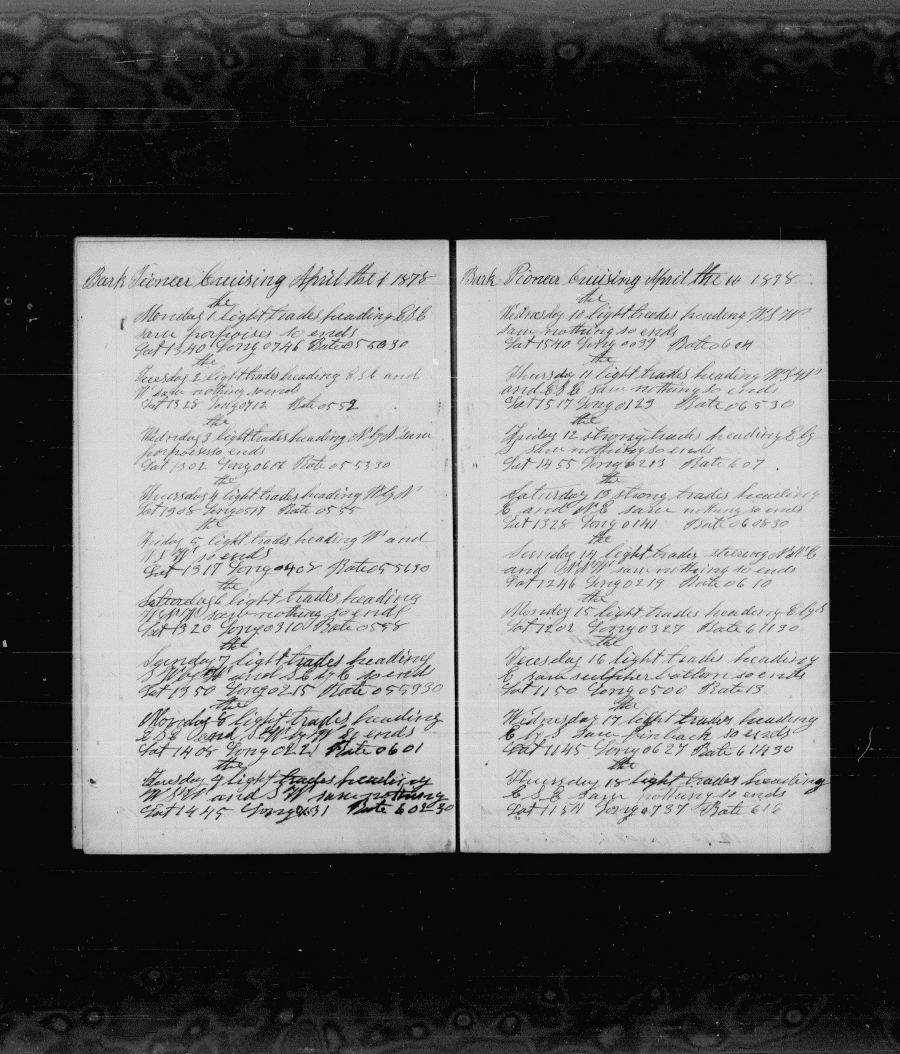 Bark Pioneer Cruising April the 1 1878
the
Monday 1 light trades heading E S E
saw porpoises so ends
Lat 13 40 Long 07 46 Rate 05 50 30
the
Tuesday 2 light trades heading E S E and
W saw nothing so ends
Lat 13 28 Long 07 12 Rate 05 52
the
Wednesday 3 light trades heading N by W saw
porpoises so ends
Lat 13 02 Long 06 18 Rate 05 53 30
the
Thursday 4 light trades heading W by N
Lat 13 08 Long 05 17 Rate 05 55
the
Friday 5 light trades heading W and
W S W so ends
Lat 13 17 Long 04 08 Rate 05 56 30
the
Saturday 6 light trades heading
W S W saw nothing so ends
Lat 13 20 Long 03 10 Rate 05 58
the
Sunday 7 light trades heading
S W by W and S E by E so ends
Lat 13 50 Long 02 15 Rate 05 59 30
the
Monday 8 light trades heading
E S E and S W by W so ends
Lat 14 08 Long 02 21 Rate 06 01
the
Tuesday 9 light trades heading
W S W and S W saw nothing
Lat 14 45 Long 31 Rate 6 02 30
Bark Pioneer Cruising April the 10 1878
the
Wednesday 10 light trades heading W S W
saw nothing so ends
Lat 15 40 Long 00 39 Rate 06 04
the
Thursday 11 light trades heading W S W
and E S E saw nothing so ends
Lat 15 17 Long 01 23 Rate 06 5 30
the
Friday 12 strong trades heading E by
S saw nothing so ends
Lat 14 55 Long 02 13 Rate 6 07
the
Saturday 13 strong trades heading
E and N E saw nothing so ends
Lat 13 28 Long 01 41 Rate 06 08 30
the
Sunday 14 light trades steering N N E
and N N W saw nothing so ends
Lat 12 46 Long 02 19 Rate 06 10
the
Monday 15 light trades heading E by S
Lat 12 02 Long 03 27 Rate 6 11 30
the
Tuesday 16 light trades heading
E saw sulpherbottom so ends
Lat 11 50 Long 05 00 Rate 13
the
Wednesday 17 light trades heading
E by S saw finback so ends
Lat 11 45 Long 06 27 Rate 6 14 30
the
Thursday 18 light trades heading
E S E saw nothing so ends
Lat 11 54 Long 07 37 Rate 6 16